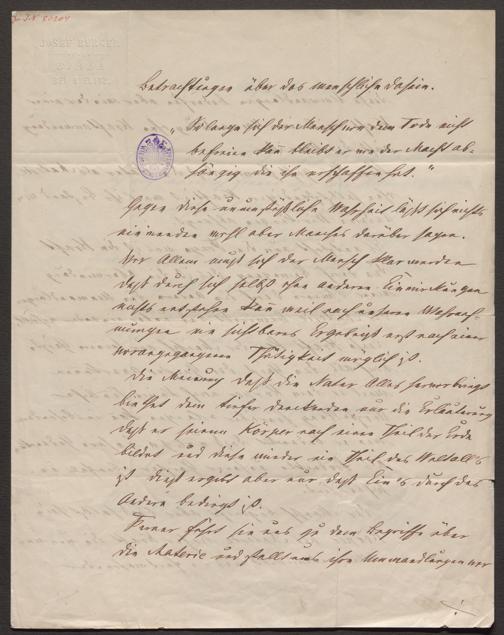 I.N. 80204
JOSEF BURGER
Betrachtungen über das menschliche Dasein.
„So lange sich der Mensch von dem Tode nicht
befreien kan bleibt er von der Macht ab-
hängig die ihn erschaffen hat."
Gegen diese unumstößliche Wahrheit läßt sich nichts
einwenden wohl aber Manches darüber sagen.
Vor Allem muß sich der Mensch klar werden
daß durch sich selbst ohne anderen Einwirkungen
nichts entstehen kan weil nach unseren Wahrneh-
mungen ein sichtbares Ergebniß erst nach einer
vorangegangenen Thätigkeit möglich ist.
Die Meinung daß die Natur Alles hervorbringt
biethet dem tiefer denckenden nur die Erläuterung
daß er seinem Körper nach einen Theil der Erde
bildet und diese wieder ein Theil des Weltall's
ist dieß ergibt aber nur daß Ein's durch das
Andere bedingt ist.
Ferner führt sie uns zu dem Begriffe über
die Materie und stellt uns ihre Umwandlungen vor